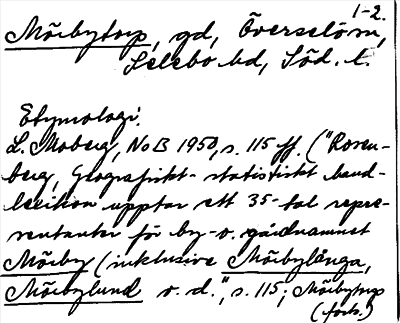 1-2.
Mörbytorp, gd, Överselöm,
Selebo hd, Söd. l.
Etymologi:
L. Moberg, NoB 1950, s. 115 ff. ("Rosen-
berg, Geografiskt-statistiskt hand-
lexikon upptar ett 35-tal repre-
sentanter för by- o. gårdnamnet
Mörby (inklusive Mörbylånga,
Mörbylund o. d.", s. 115; Mörbytorp
(forts.)